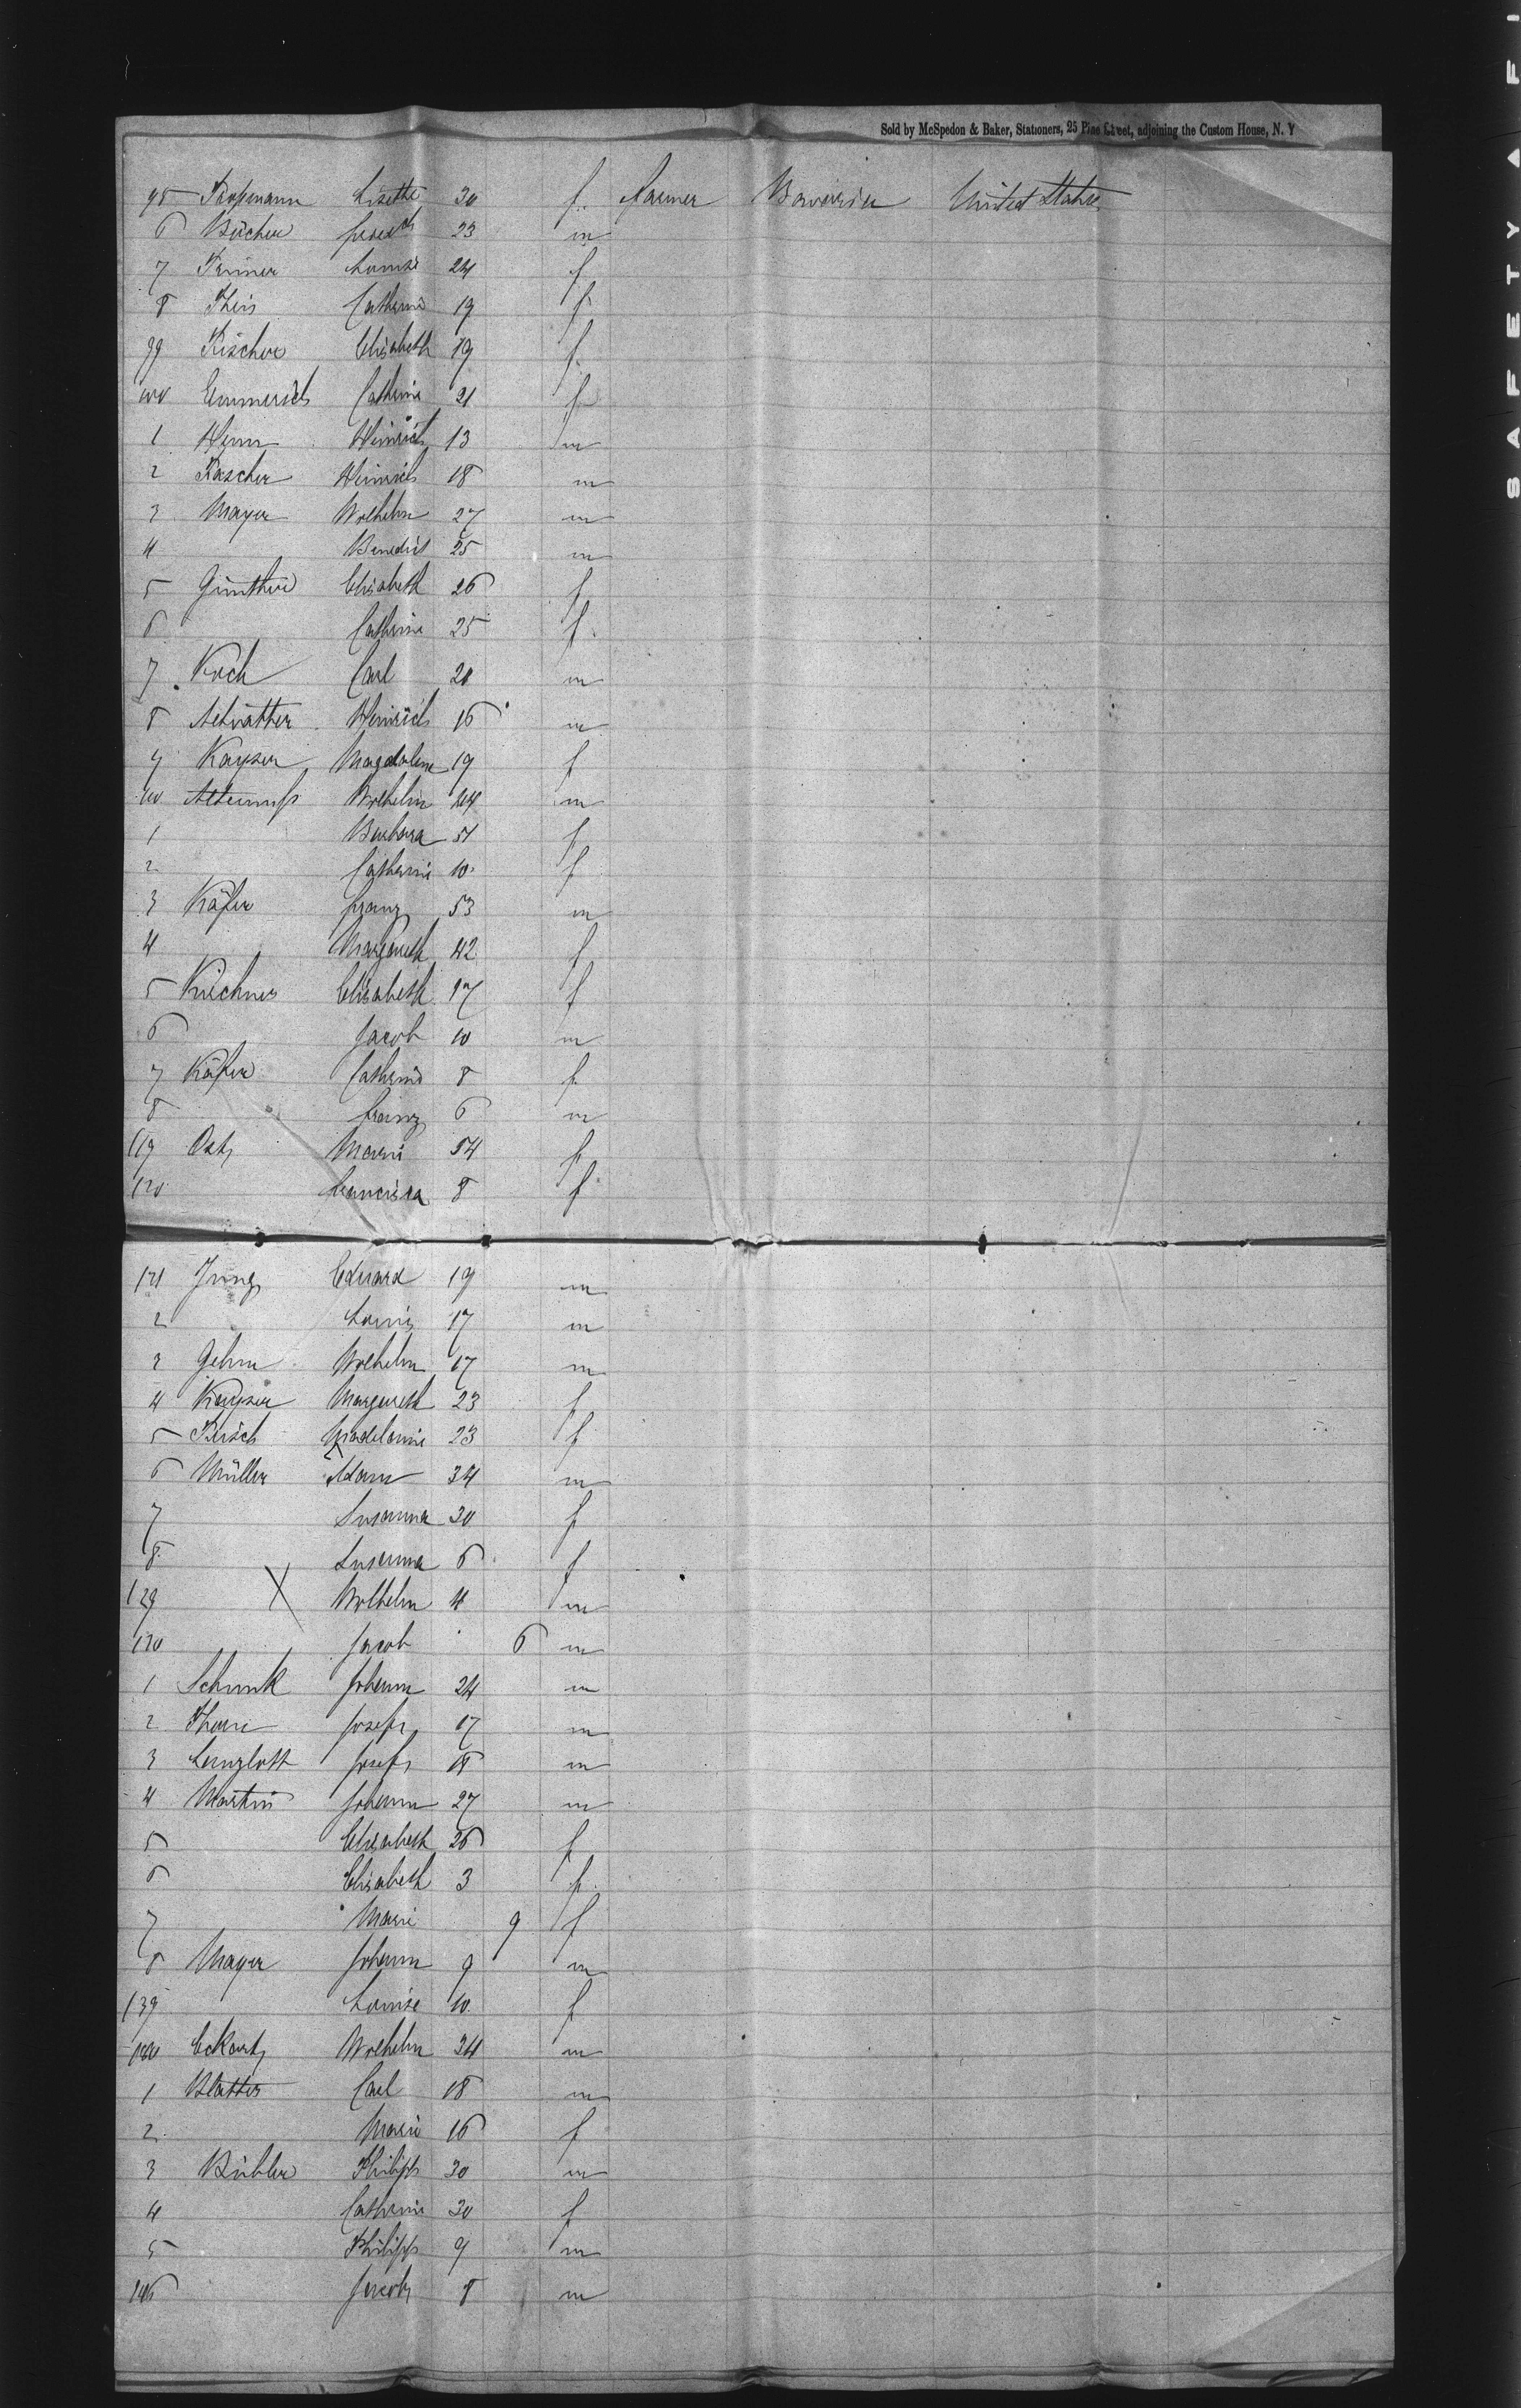 Sold by McSpedon & Baker, Stationers, 25 Pine Street, adjoining the Custom House, N. Y
95 Lisette 30 f. farmer Bavaria United States
6 Bücher 23 m
7 Louise 24 f
8 Theis Catherine 19 f
99 Fischer Elisabeth 19 f
100 Emmerich Catherine 21 f
1 Henn Heinrich 13 m
2 Heinrich 18 m
3 Mayer Wilhelm 27 m
4 Benedict 25 m
5 Günther Elisabeth 26 f
6 Catherine 25 f.
7 Koch Carl 20 m
8 Heinrich 16 m
9 Kayser Magdalene 19 f
110 Wilhelm 44 m
1 Barbara 51 f
2 Catherine 10 f
3 Käfer Franz 53 m
4 Margareth 42 f
5 Kirchner Elisabeth 17 f
6 Jacob 10 m
7 Käfer Catherine 8 f
8 Franz 6 m
119 Marie 54 f
120 Francisca 8 f
121 Jung Eduard 19 m
2 Louis 17 m
3 Gehm Wilhelm 17 m
4 Kayser Margareth 23 f
5 23 f
6 Müller Adam 34 m
7 Susanna 30 f
8 Susanna 6 f
129 X Wilhelm 4 m
130 Jacob 6 m
1 Schunk Johann 24 m
2 Josef 17 m
3 Langlott Josef 18 m
4 Martin Johann 27 m
5 Elisabeth 26 f
6 Elisabeth 3 f.
7 Marie 9 f
8 Mayer Johann 9 m
139 Louise 10 f
140 Eckart Wilhelm 34 m
1 Blatter Carl 18 m
2 Marie 16 f
3 Bühler Philipp 30 m
4 Catherine 30 f
5 Philipp 9 m
146 Jacob 8 m
SAFETY